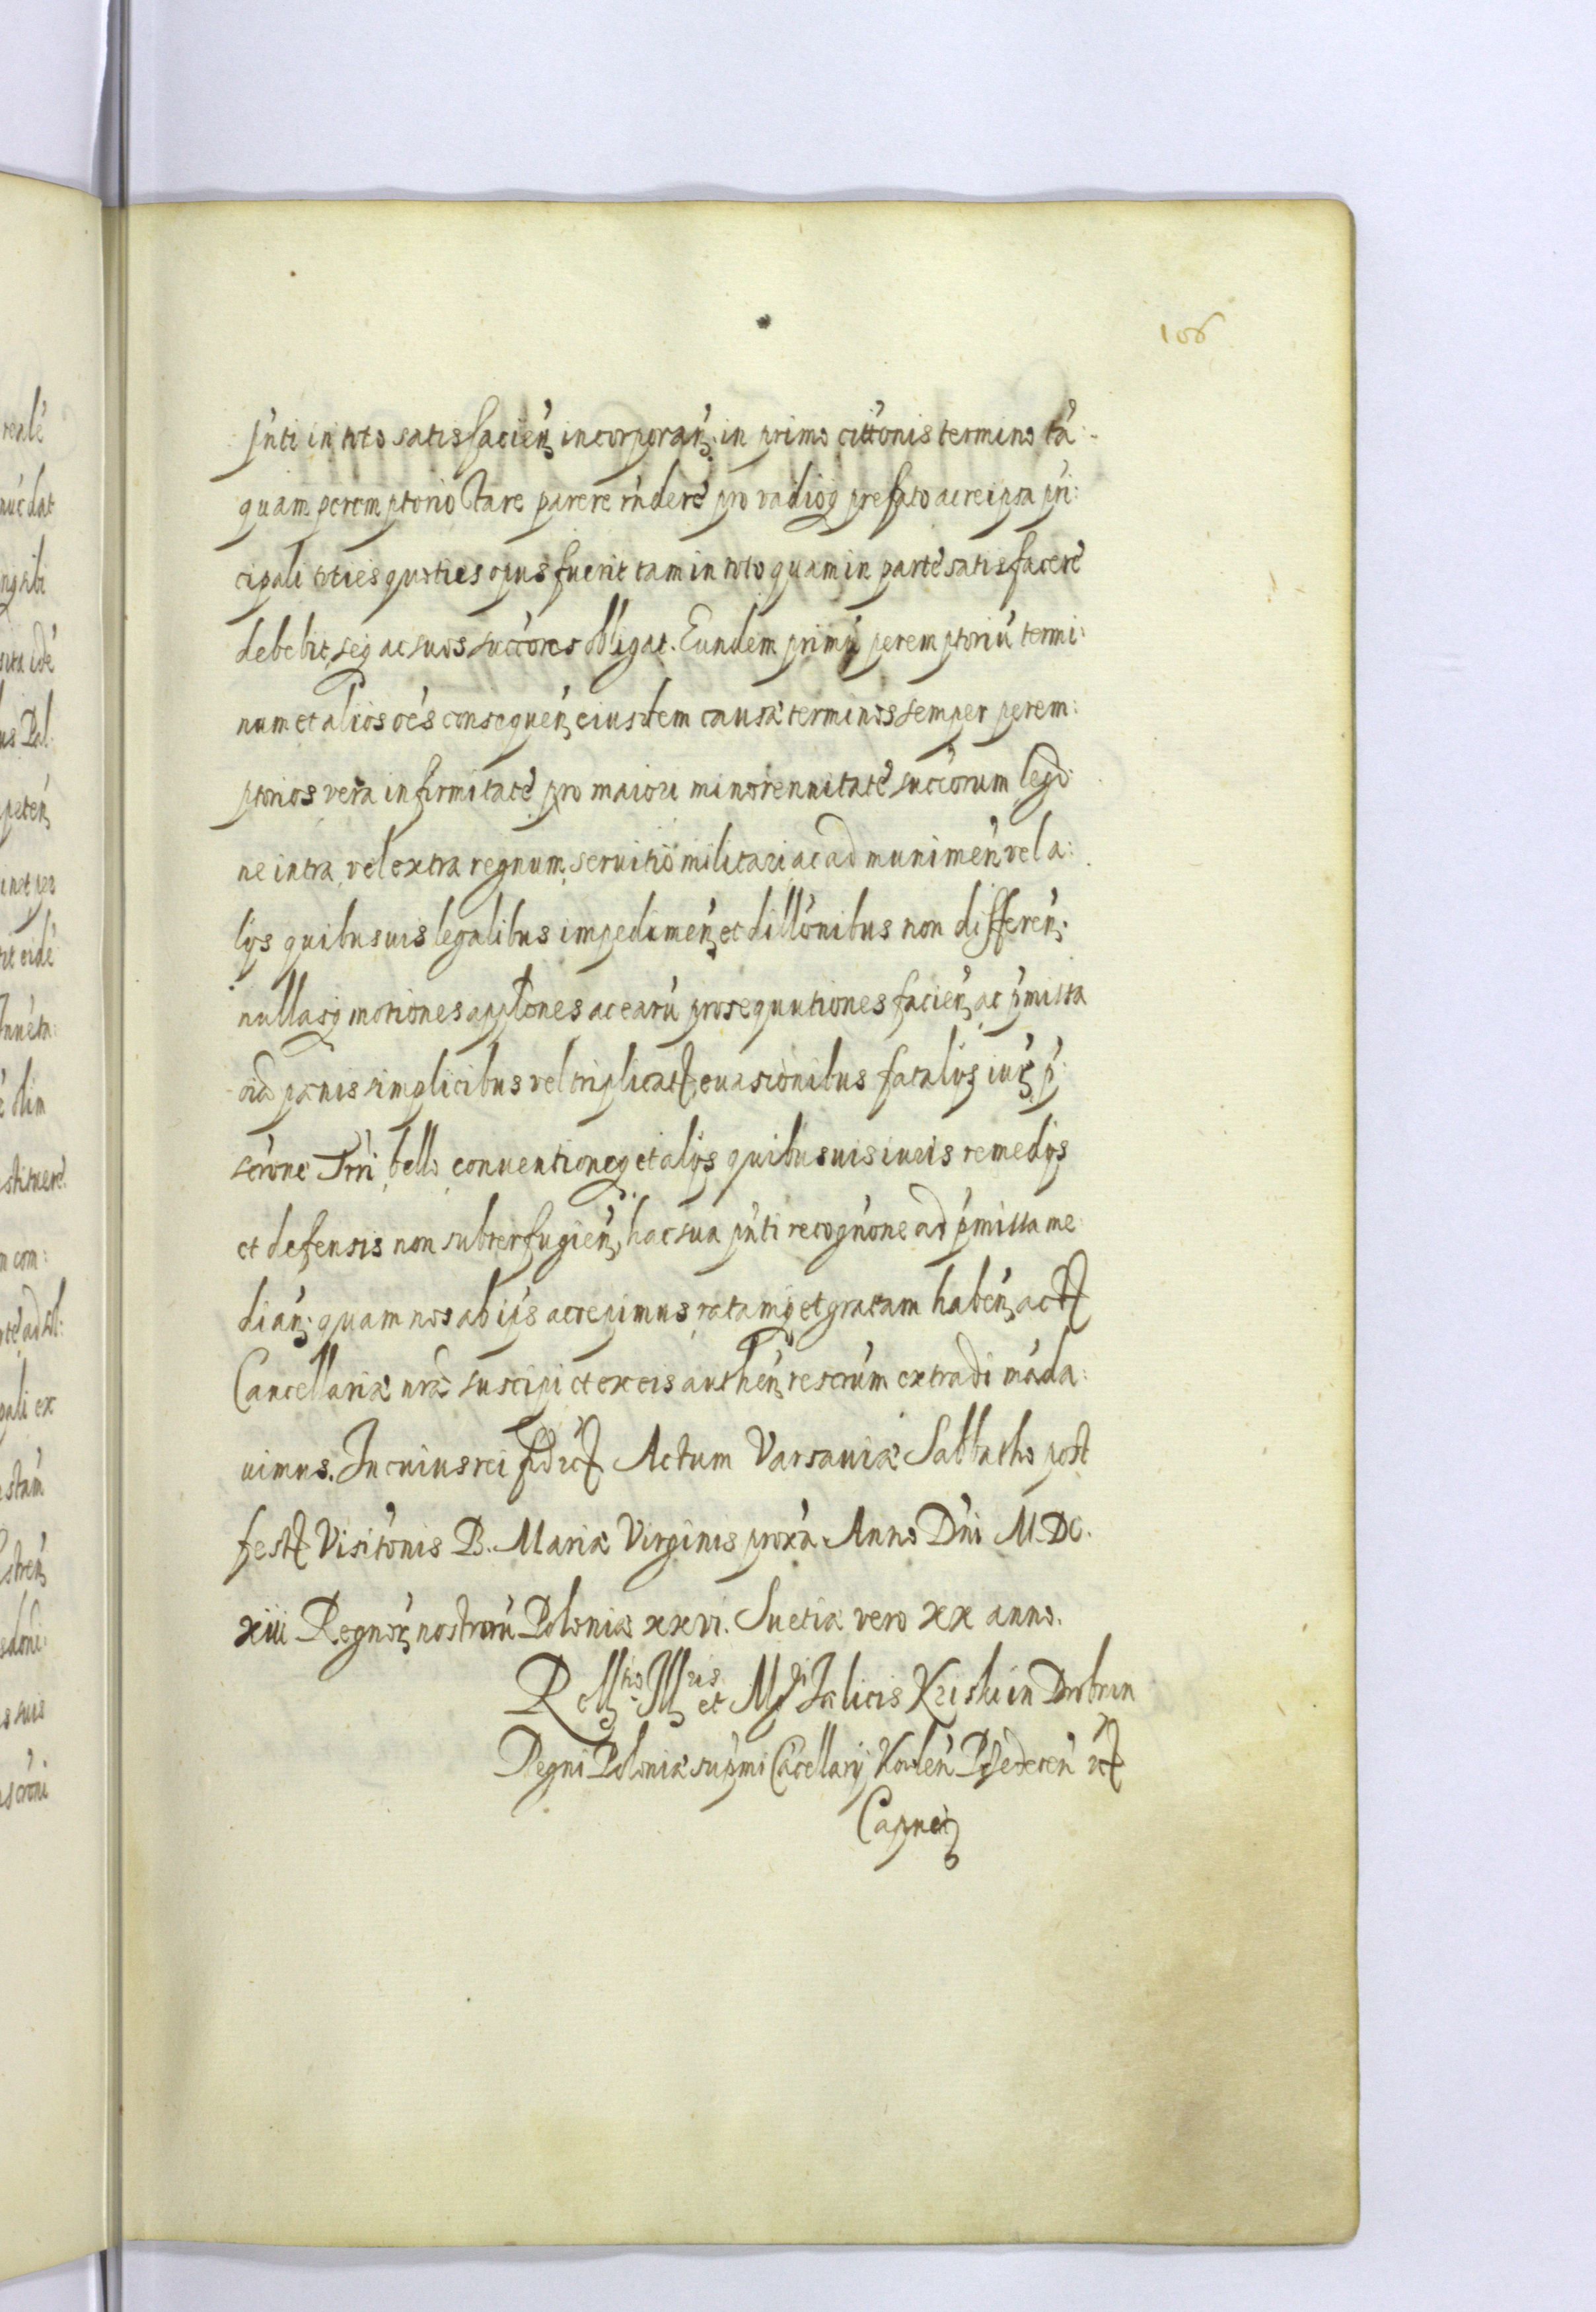 106
pn̄ti in toto satisfacien̄ incorporan̄: in primo cittōnis termino tā:
quam peremptorio stare parere rn̄dere pro vadioq̨ prefato ac re ipsa pri:
cipali toties quoties opus fuerit tam in toto quam in parte satisfacere
debebit, seq̨ ac suos succōres obligat. Eundem primū peremptoriū termi:
num et alios oēs consequen̄ eiusdem causæ terminos semper perem:
ptorios vera infirmitate pro maiori minorennitate succōrum legō:
ne intra vel extra regnum seruitio militari ac ad munimen̄ vel a:
lijs quibusuis legalibus impedimen̄ et dillōnibus non differen̄:
nullasq̨ motiones appłōnes ac earū prosequutiones facien̄ ac p̄missa
oīa pœnis simplicibus vel triplicat̄ euasionibus fatalıū iur̄ p̄:
scrōne Trri bello conuentioneq̨ et alijs quibusuis iuris remedijs
et defensis non subterfugien̄, hac sua pn̄ti recognōne ad p̄missa me:
dian̄: quam nos ab ijs accepimus ratamq̨ et gratam haben̄ act̄
Cancellariæ nræ suscipi et ex eis authen̄ rescrūm extradi māda:
uimus. In cuius rei fid̄ et̄c Actum Varsauiæ Sabbatho post
fest̄ Visitōnis B. Mariæ Virginis proxā Anno Dn̄i M.DC.
xiii Regnor̄ nostrorū Poloniæ xxvi. Suetiæ vero xx anno.
Rellтio Illris et Mgci Fælicis Kriski in Drobnin
Regni Poloniæ supm̄i Cācellarij Kowlen̄ et̄c
Capnei